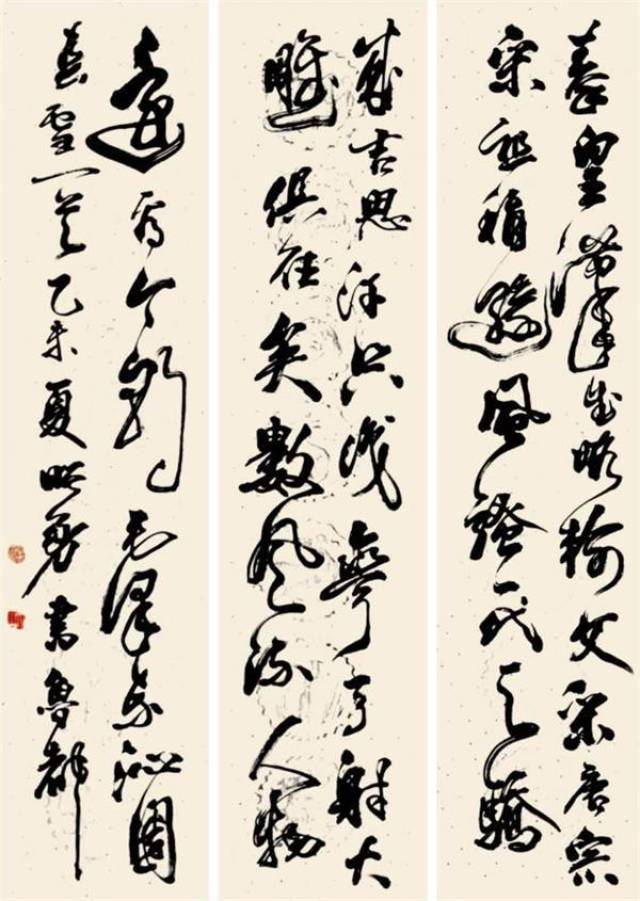 秦皇漢武略輸文采唐宗
宋祖稍遜風騷一代天驕
成吉思汗只識彎弓射大
雕俱往矣數風流人物
還看今朝毛澤東沁園
春雪一首乙未夏書魯都